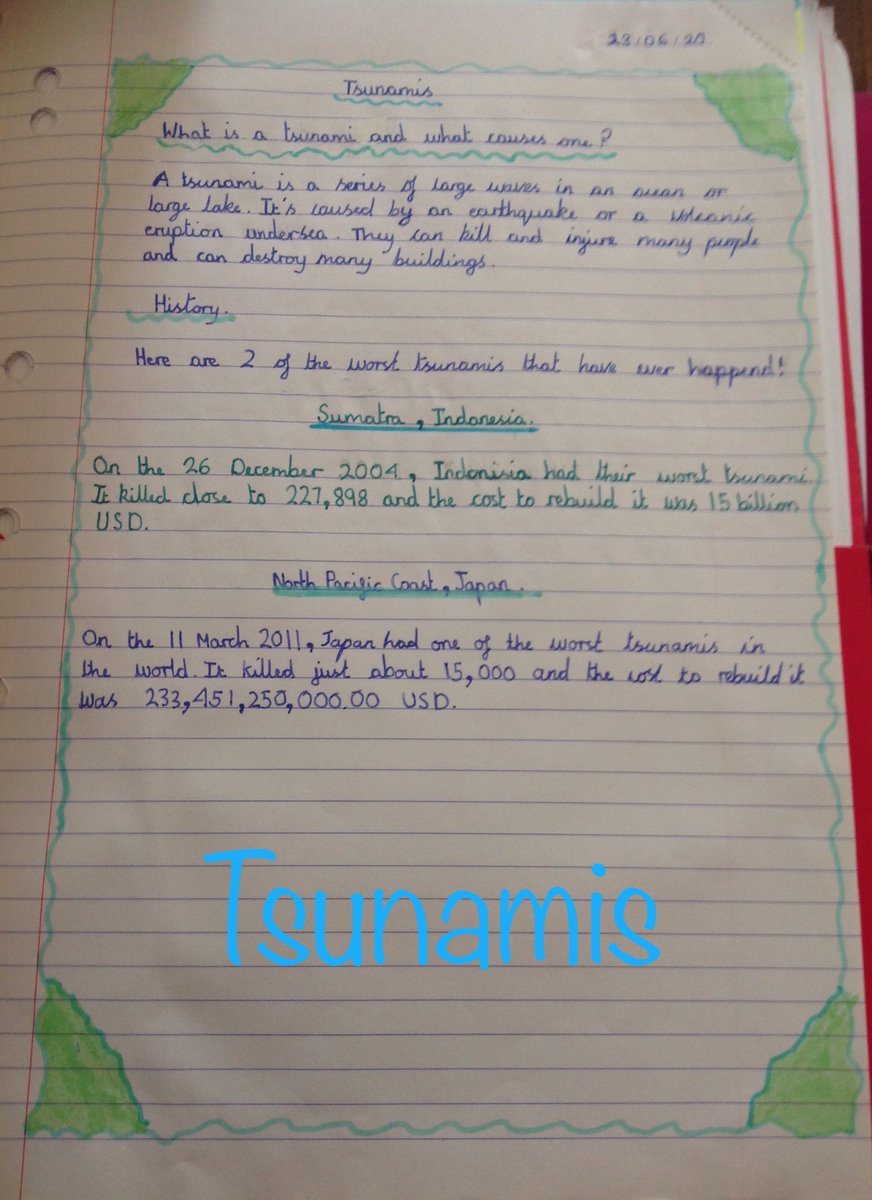 23/06/20
Tsunamis
What is a tsunami and what causes one?
A tsunami is a series of large waves in an ocean or
large lake. It's caused by an earthquake or a volcanic
eruption undersea. They can kill and injure many people
and can destroy many buildings.
History.
Here are 2 of the worst tsunamis that have ever happend!
Sumatra, Indonesia.
On the 26 December 2004, Indonisia had their worst tsunami.
It killed close to 227,898 and the cost to rebuild it was 15 billion
USD.
North Pacific Coast, Japan.
On the 11 March 2011, Japan had one of the worst tsunamis in
the world. It killed just about 15,000 and the cost to rebuild it
was 233,451,250,000.00 USD.
Tsunamis